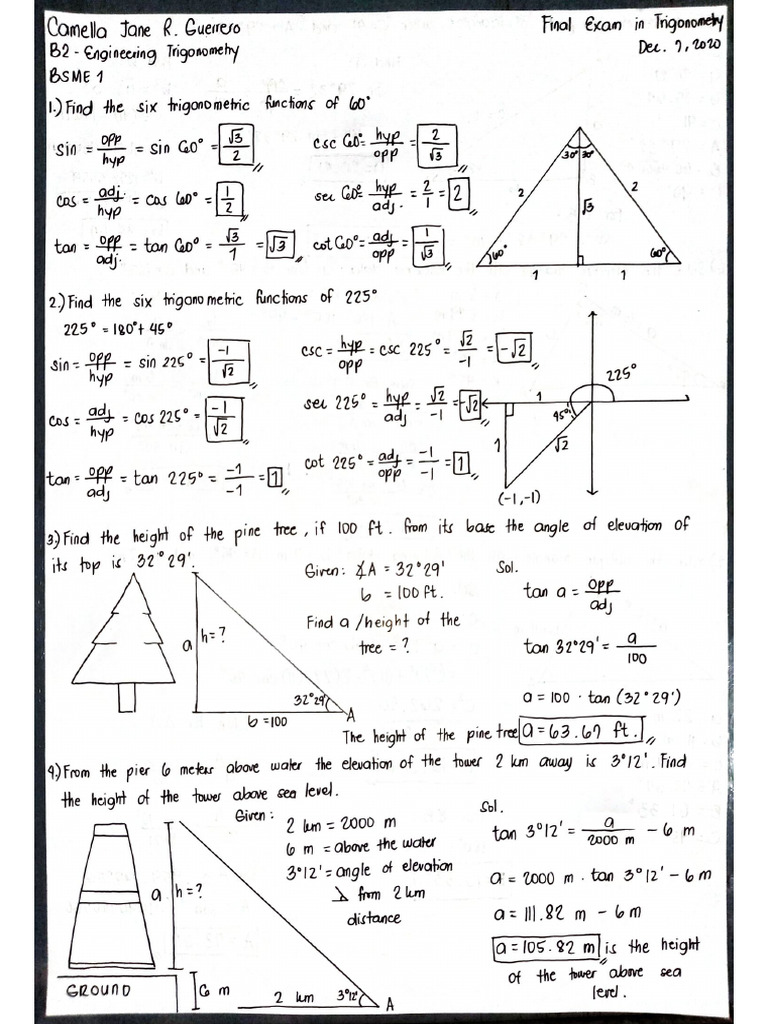 Camella Jane R. Guerrero
Final Exam in Trigonometry
B2 - Engineering Trigonometry
Dec. 7, 2020
BSME 1
1.) Find the six trigonometric functions of 60°
sin = opp/hyp = sin 60° = √3/2
csc 60° = hyp/opp = 2/√3
cos = adj/hyp = cos 60° = 1/2
sec 60° = hyp/adj. = 2/1 = 2
tan = opp/adj. = tan 60° = √3/1 = √3
cot 60° = adj/opp = 1/√3
30° 30°
2 2
√3
60° 60°
1 1
2.) Find the six trigonometric functions of 225°
225° = 180° + 45°
sin = opp/hyp = sin 225° = -1/√2
csc = hyp/opp = csc 225° = √2/-1 = -√2
cos = adj/hyp = cos 225° = -1/√2
sec 225° = hyp/adj = √2/-1 = -√2
tan = opp/adj = tan 225° = -1/-1 = 1
cot 225° = adj/opp = -1/-1 = 1
225°
1
45°
1
√2
(-1,-1)
3.) Find the height of the pine tree, if 100 ft. from its base the angle of elevation of
its top is 32°29'.
a h = ?
32°29'
b = 100
A
Given: ∡A = 32°29'
b = 100 ft.
Find a / height of the
tree = ?
Sol.
tan a = opp/adj
tan 32°29' = a/100
a = 100 · tan (32°29')
The height of the pine tree a = 63.67 ft.
4.) From the pier 6 meters above water the elevation of the tower 2 km away is 3°12'. Find
the height of the tower above sea level.
Given:
2 km = 2000 m
6 m = above the water
3°12' = angle of elevation
∡ from 2 km
distance
Sol.
tan 3°12' = a/2000 m - 6 m
a = 2000 m · tan 3°12' - 6 m
a = 111.82 m - 6 m
a = 105.82 m is the height
of the tower above sea
level.
a h = ?
GROUND
6 m
2 km
3°12'
A